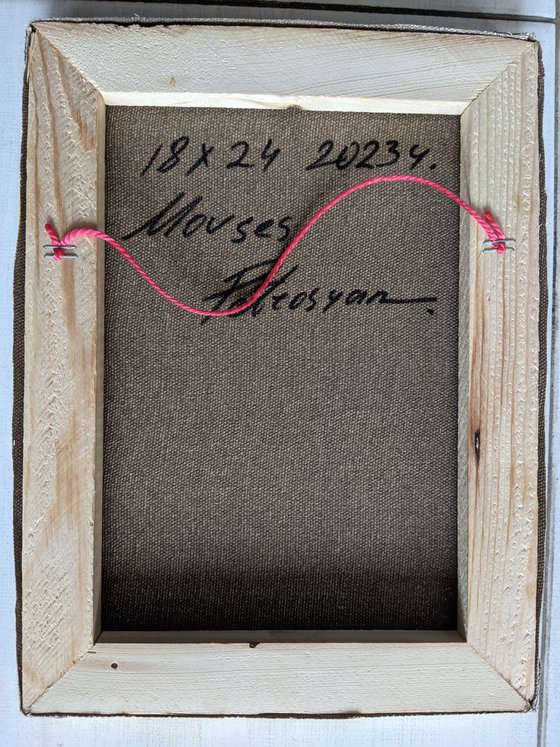 18 x 24 2023 y.
Movses
Petrosyan.